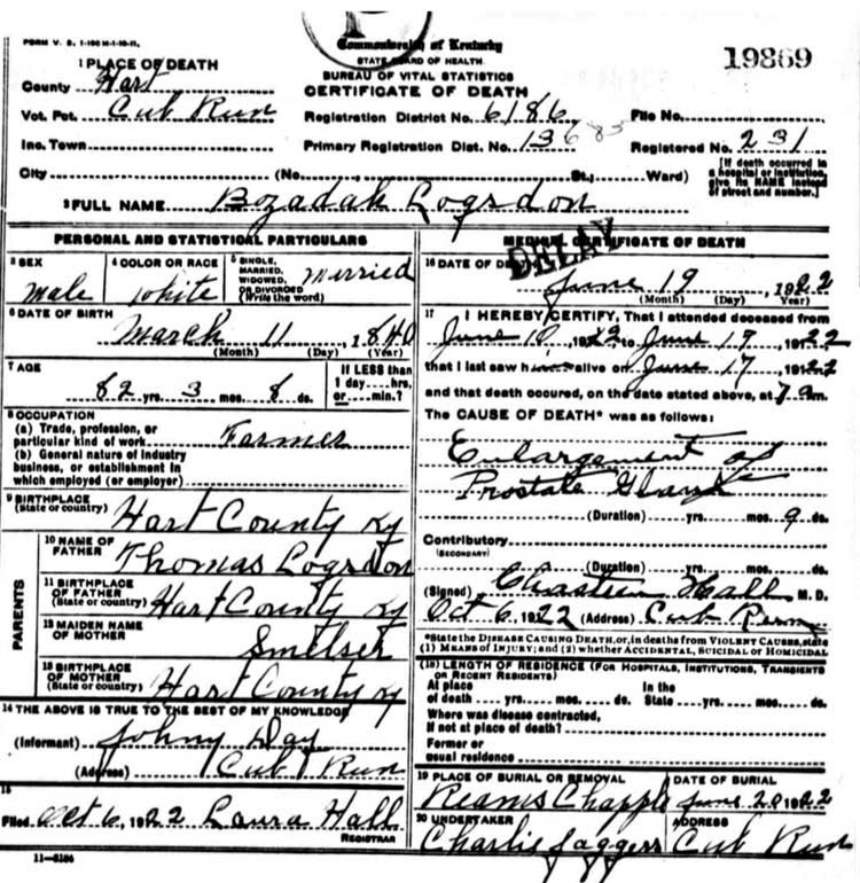 FORM V. S. 1-
Commonwealth of Kentucky
STATE BOARD OF HEALTH
BUREAU OF VITAL STATISTICS
CERTIFICATE OF DEATH
19869
1 PLACE OF DEATH
County Hart
Vot. Pct. Cub Run
Inc. Town
City (No. St.; Ward)
Registration District No. 6186
File No.
Primary Registration Dist. No. 13683
Registered No. 231
[If death occurred in a hospital or institution, give its NAME instead of street and number.]
2 FULL NAME Bozadak Logsdon
PERSONAL AND STATISTICAL PARTICULARS
3 SEX male
4 COLOR OR RACE white
5 SINGLE, MARRIED, WIDOWED, OR DIVORCED (Write the word) Married
6 DATE OF BIRTH
March 11, 1840
(Month) (Day) (Year)
7 AGE
82 yrs. 3 mos. 8 ds.
If LESS than 1 day....hrs. or....min.?
8 OCCUPATION
(a) Trade, profession, or particular kind of work Farmer
(b) General nature of industry business, or establishment in which employed (or employer)
9 BIRTHPLACE (State or country) Hart County Ky
PARENTS
10 NAME OF FATHER Thomas Logsdon
11 BIRTHPLACE OF FATHER (State or country) Hart County Ky
12 MAIDEN NAME OF MOTHER Smelser
13 BIRTHPLACE OF MOTHER (State or country) Hart County Ky
14 THE ABOVE IS TRUE TO THE BEST OF MY KNOWLEDGE
(Informant) Johny Day
(Address) Cub Run
15
Filed Oct 6, 1922 Laura Hall
REGISTRAR
11—
MEDICAL CERTIFICATE OF DEATH
DELAY
16 DATE OF DEATH
June 19, 1922
(Month) (Day) (Year)
17 I HEREBY CERTIFY, That I attended deceased from
June 10, 1922 to June 19, 1922
that I last saw h alive on June 17, 1922
and that death occured, on the date stated above, at 7 am.
The CAUSE OF DEATH* was as follows:
Enlargement of
Prostate Gland
(Duration) yrs. mos. 9 ds.
Contributory
(SECONDARY)
(Duration) yrs. mos. ds.
(Signed) Chasteen Hall M. D.
Oct 6, 1922 (Address) Cub Run
*State the DISEASE CAUSING DEATH, or, in deaths from VIOLENT CAUSES, state
(1) MEANS OF INJURY; and (2) whether ACCIDENTAL, SUICIDAL or HOMICIDAL
(18) LENGTH OF RESIDENCE (FOR HOSPITALS, INSTITUTIONS, TRANSIENTS OR RECENT RESIDENTS)
At place of death yrs. mos. ds. In the State yrs. mos. ds.
Where was disease contracted, if not at place of death?
Former or usual residence
19 PLACE OF BURIAL OR REMOVAL Reams Chapple
DATE OF BURIAL June 20 1922
20 UNDERTAKER Charlie Jaggers
ADDRESS Cub Run